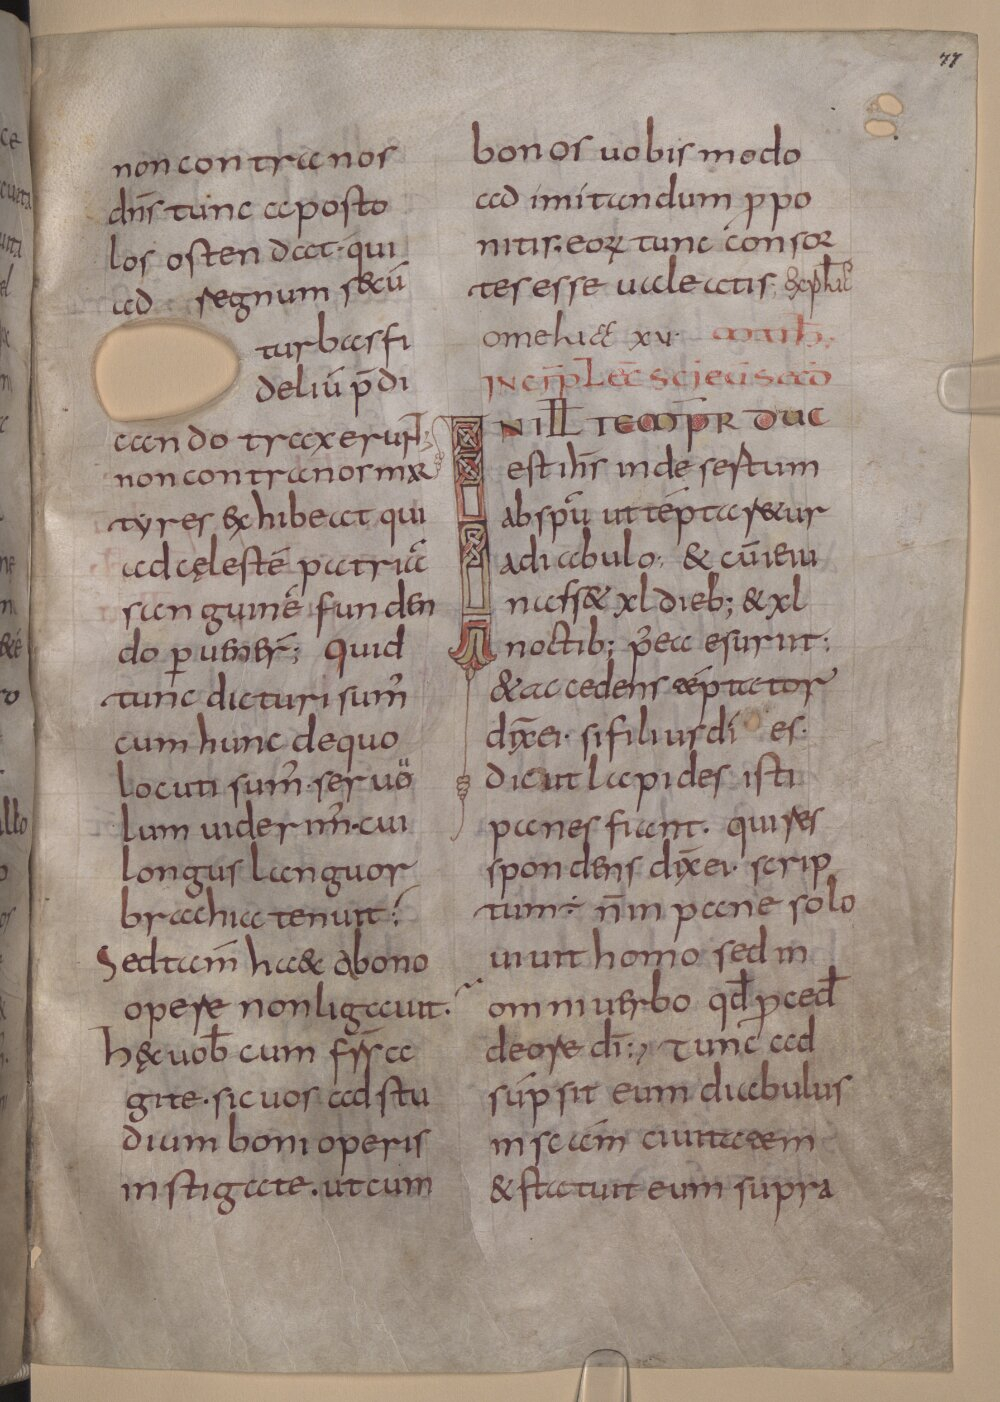 77
non contra nos
dn̄s tunc aposto
los ostendat· qui
ad regnum secū
turbas fi
deliū p̄di
cando traxerunt;
non contra nos mar
tyres exhibeat qui
ad cęlestē patriā
sanguinē funden
do peruener̄; Quid
tunc dicturi sum᷒
cum hunc de quo
locuti sum᷒· seruo
lum uiderim᷒· cui
longus languor
brachia tenuit?
Sed tam̄ haec a bono
opere non ligauit.
hęc uob̄ cum fr̄s a
gite· sic uos ad stu
dium boni operis
instigate. ut cum
bonos uobis modo
ad imitandum ꝓpo
nitis; eoꝝ tunc consor
tes esse ualeatis;
omelia xv·
INCIP̄ LEC̄ SC̄I EŪ SCD̄
IN ILL̄ TEMPR̄ DUC
est ih̄s in desertum
ab spū ut tēptaretur
a diabulo; & cū ieiu
nass& xl dieb; & xl
noctib; p̄ea esurut:
& accedens tēptator
dix̄ ei· si filius dī es·
dic ut lapides isti
panes fiant. qui res
pondens dix̄ ei· scrip
tum ÷ n̄ in pane solo
uiuit homo sed in
omni uerbo qd̄ ꝓced̄
de ore dī; Tunc ad
sūpsit eum diabulus
in scām ciuitatem
& statuit eum supra